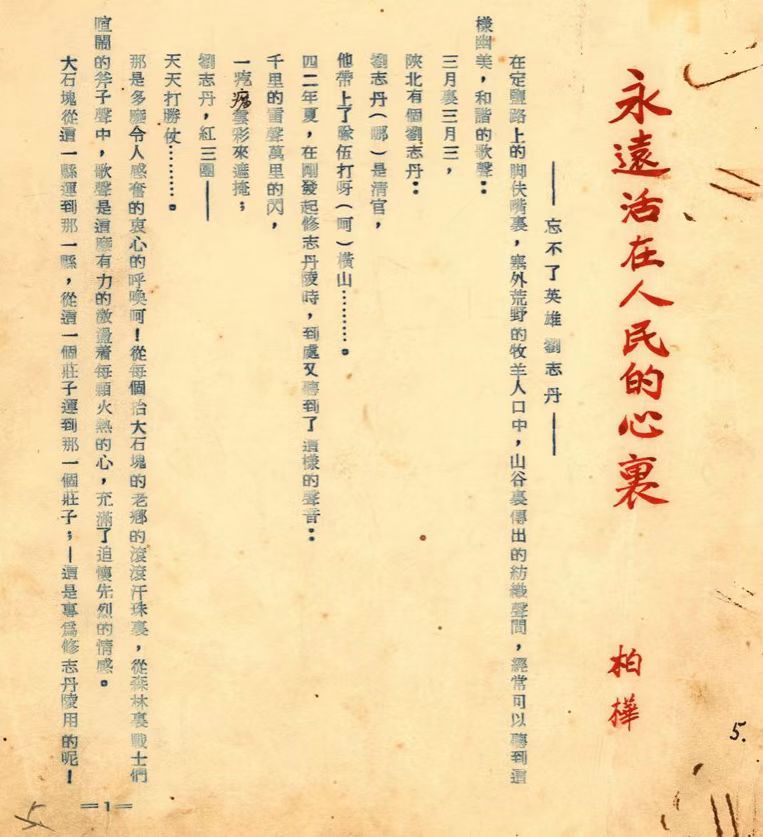 永遠活在人民的心裏
柏樺
5.
——忘不了英雄劉志丹——
在定鹽路上的脚伕嘴裏，塞外荒野的牧羊人口中，山谷裏傳出的紡織聲間，經常可以聽到這
樣幽美，和諧的歌聲：
三月裏三月三，
陝北有個劉志丹：
劉志丹（哪）是清官，
他帶上了隊伍打呀（呵）橫山………。
四二年夏，在剛發起修志丹陵時，到處又聽到了這樣的聲音：
千里的雷聲萬里的閃，
一疙瘩雲彩來遮掩；
劉志丹，紅三團——
天天打勝仗………。
那是多麼令人感奮的衷心的呼喚呵！從每個抬大石塊的老鄉的滾滾汗珠裏，從森林裏戰士們
喧鬧的斧子聲中，歌聲是這麼有力的激盪着每顆火熱的心，充滿了追懷先烈的情感。
大石塊從這一縣運到那一縣，從這一個莊子運到那一個莊子；—這是專爲修志丹陵用的呢！
=1=
5.